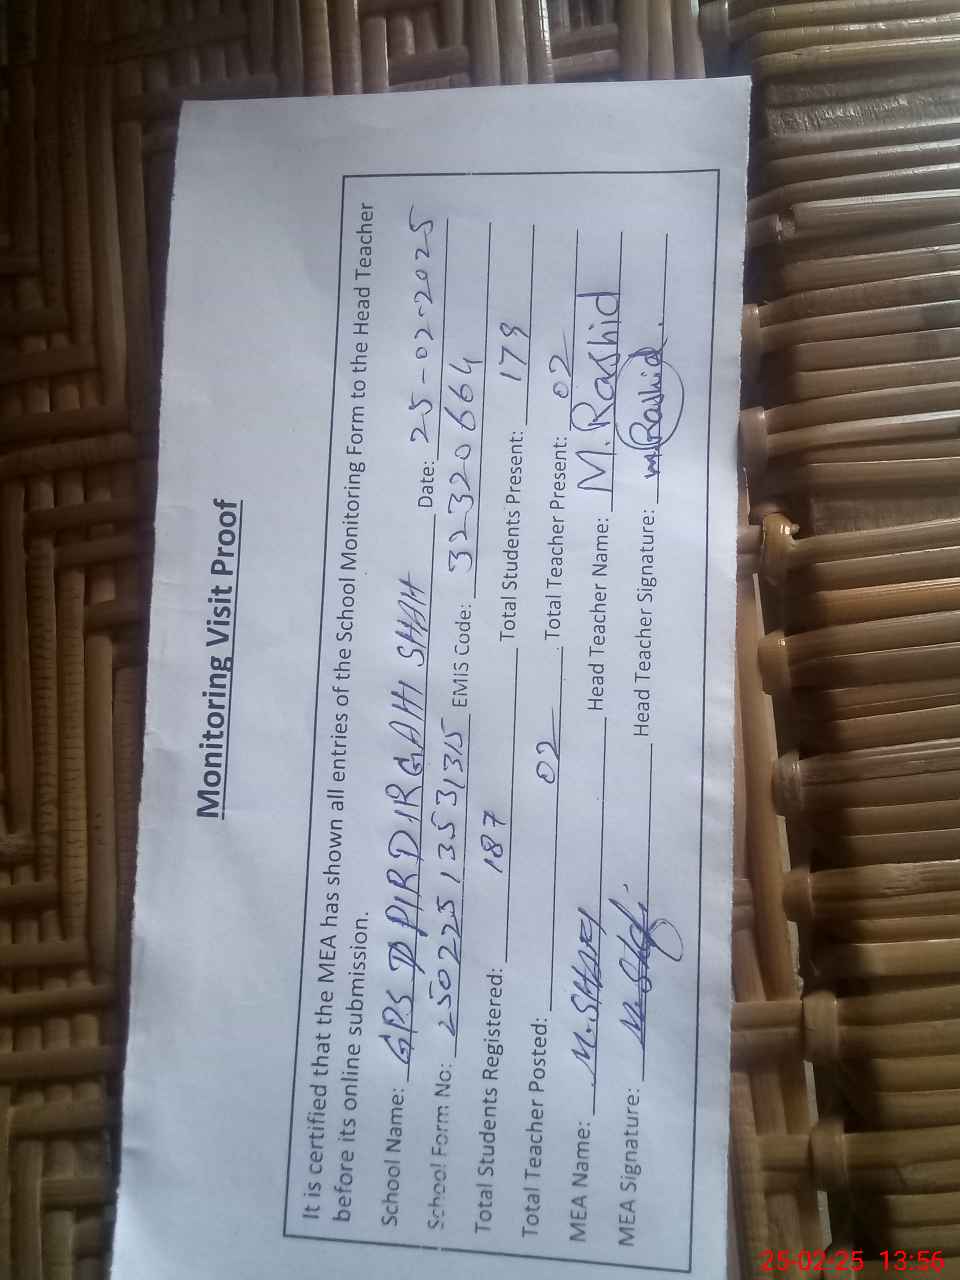 Monitoring Visit Proof
It is certified that the MEA has shown all entries of the School Monitoring Form to the Head Teacher
before its online submission.
School Name: GPS PIR DIRGAHI SHAH Date: 25-02-2025
School Form No: 25022513531315 EMIS Code: 32320664
Total Students Registered: 187 Total Students Present: 179
Total Teacher Posted: 02 Total Teacher Present: 02
MEA Name: M. Head Teacher Name: M. Rashid
MEA Signature: Head Teacher Signature: M. Rashid
25-02-25 13:56